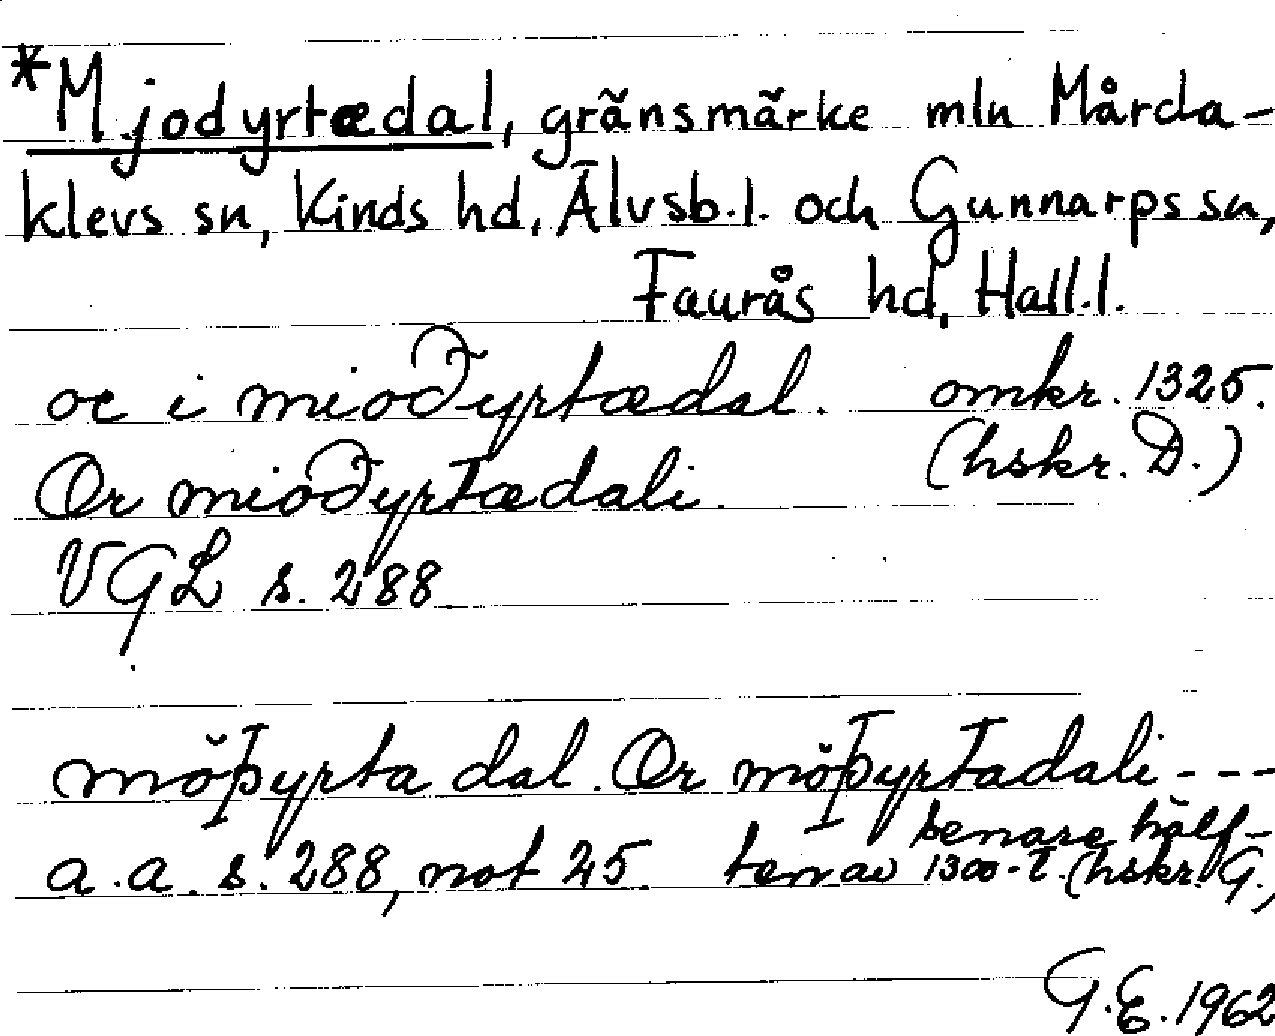 *Mjodyrtædal, gränsmärke mln Mårda-
klevs sn, Kinds hd, Älvsb.l. och Gunnarps sn,
Faurås hd, Hall.l.
oc i mioðyrtædal. omkr. 1325.
Or mioðyrtædali. (hskr. D.)
VGL s. 288
möþyrta dal. Or möþyrtadali - - -
a.a. s. 288, not 25. senare hälf-
ten av 1300-t. (hskr. G.)
G.E. 1962